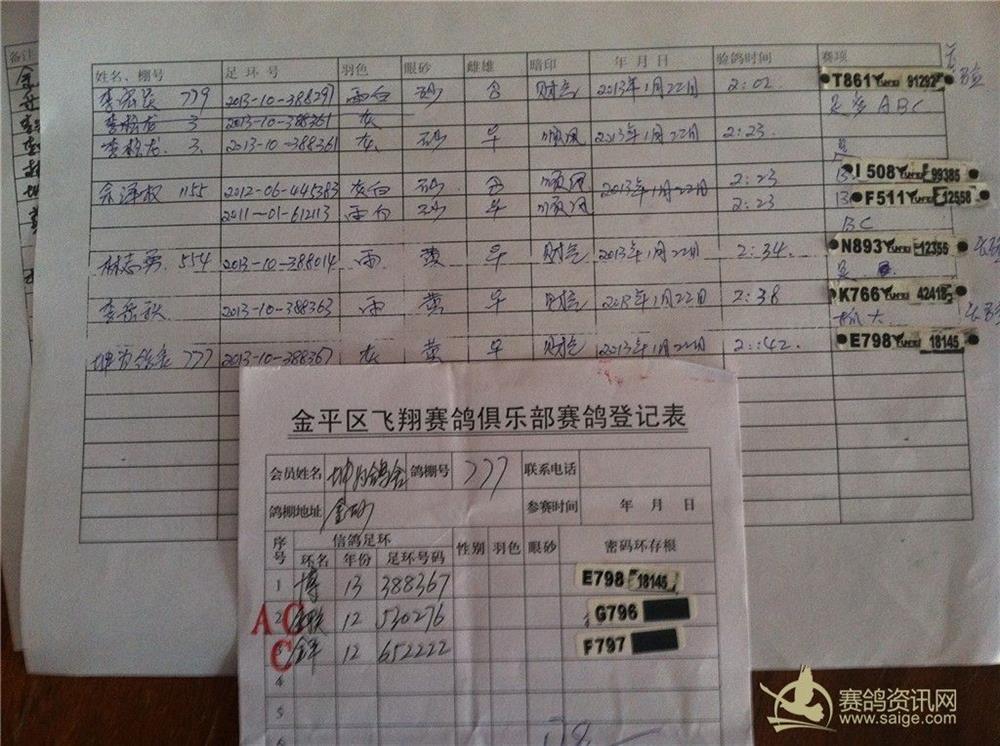 备注
姓名、棚号 足环号 羽色 眼砂 雌雄 暗印 年月日 验鸽时间 赛项
779 2013-10-388291 雨白 砂 财气 2013年1月22日 2:02 T861 91292
是多ABC
李 龙 3 2013-10-388361 灰
李 龙 3 2013-10-388361 灰 砂 早 顺风 2013年1月22日 2:23
是
余泽权 1155 2012-06-445383 灰白 砂 顺风 2013年1月22日 2:23 13 I 508 99385
2011-01-612113 雨白 砂 早 顺风 2:23 13 F511 12558
BC
林志勇 554 2013-10-388014 雨 黄 早 财气 2013年1月22日 2:34 N893 12356
是
李 秋 2013-10-388363 雨 黄 早 财气 2013年1月22日 2:38 K766 42418
777 2013-10-388367 灰 黄 早 财气 2013年1月22日 2:42 E798 18145
金平区飞翔赛鸽俱乐部赛鸽登记表
会员姓名 鸽棚号 777 联系电话
鸽棚地址 金砂 参赛时间 年 月 日
序号 信鸽足环 性别 羽色 眼砂 密码环存根
环名 年份 足环号码
1 博 13 388367 E798 18145
AC 2 12 530276 G796
C 3 12 652222 F797
4
5
6
赛鸽资讯网
www.saige.com